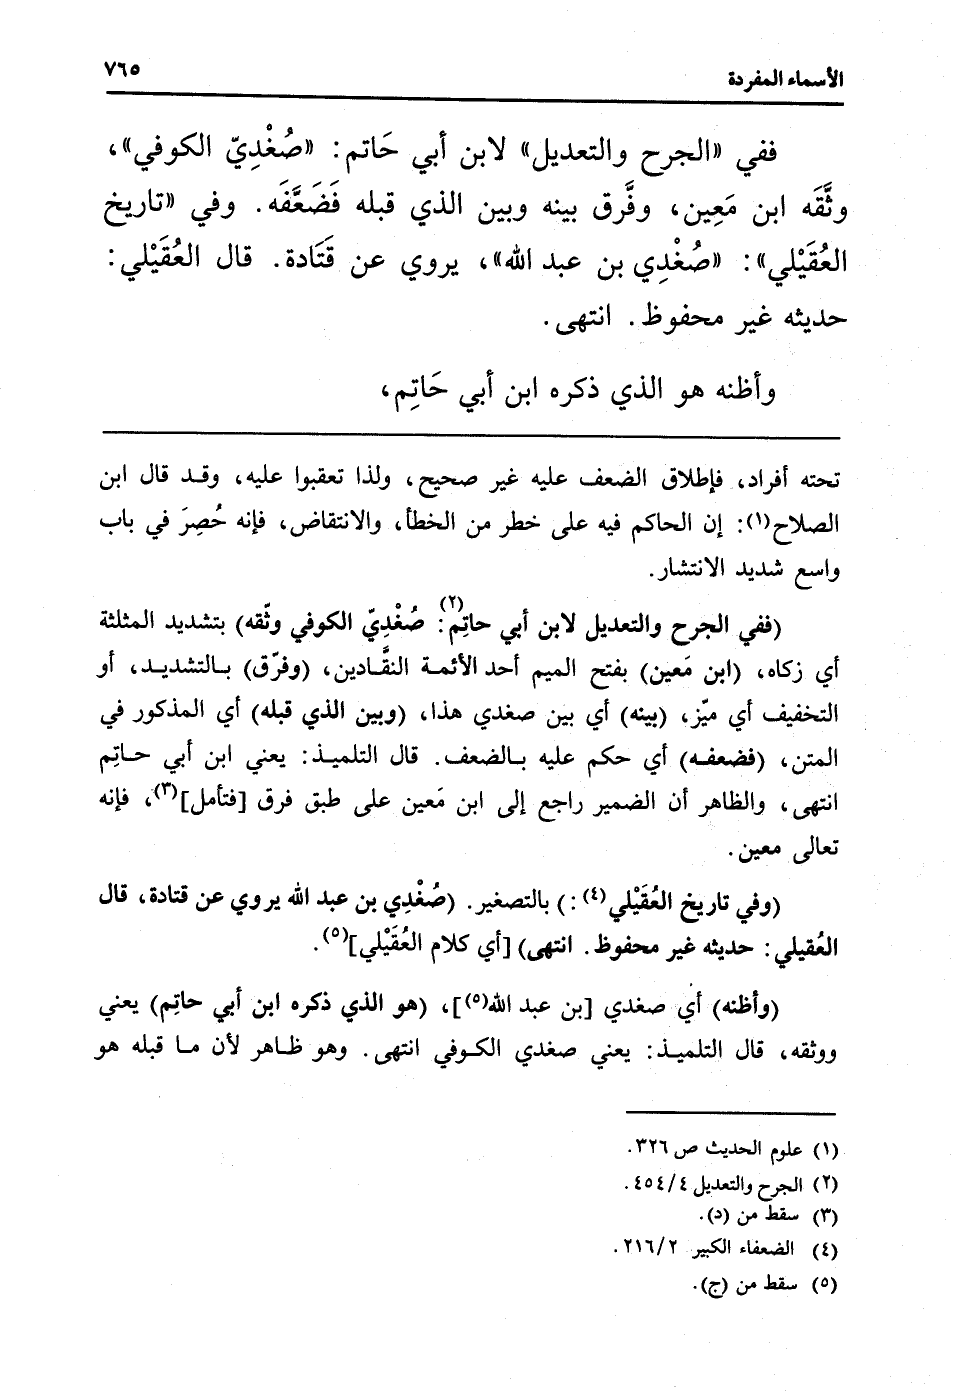 الأسماء المفردة
٧٦٥
ففي «الجرح والتعديل» لابن أبي حَاتم: «صُغْدِيّ الكوفي»،
وثَّقَه ابن مَعِين، وفَّرق بينه وبين الذي قبله فَضَعَّفَه. وفي «تاريخ
العُقَيْلي»: «صُغْدِي بن عبد الله»، يروي عن قَتَادة. قال العُقَيْلي:
حديثه غير محفوظ. انتهى.
وأظنه هو الذي ذكره ابن أبي حَاتِم،
تحته أفراد، فإطلاق الضعف عليه غير صحيح، ولذا تعقبوا عليه، وقد قال ابن
الصلاح(١): إن الحاكم فيه على خطر من الخطأ، والانتقاض، فإنه حُصِرَ في باب
واسع شديد الانتشار.
(ففي الجرح والتعديل لابن أبي حاتِم(٢): صُغْدِيّ الكوفي وثّقه) بتشديد المثلثة
أي زكاه، (ابن مَعين) بفتح الميم أحد الأئمة النقَّادين، (وفرّق) بالتشديد، أو
التخفيف أي ميّز، (بينه) أي بين صغدي هذا، (وبين الذي قبله) أي المذكور في
المتن، (فضعفه) أي حكم عليه بالضعف. قال التلميذ: يعني ابن أبي حاتِم
انتهى، والظاهر أن الضمير راجع إلى ابن مَعين على طبق فرق [فتأمل](٣)، فإنه
تعالى معين.
(وفي تاريخ العُقَيْلي(٤):) بالتصغير. (صُغْدِي بن عبد الله يروي عن قتادة، قال
العُقيلي: حديثه غير محفوظ. انتهى) [أي كلام العُقَيْلي](٥).
(وأظنه) أي صغدي [بن عبد الله(٥)]، (هو الذي ذكره ابن أبي حاتِم) يعني
ووثقه، قال التلميذ: يعني صغدي الكوفي انتهى. وهو ظاهر لأن ما قبله هو
(١) علوم الحديث ص ٣٢٦.
(٢) الجرح والتعديل ٤/ ٤٥٤.
(٣) سقط من (د).
(٤) الضعفاء الكبير ٢/ ٢١٦.
(٥) سقط من (ج).